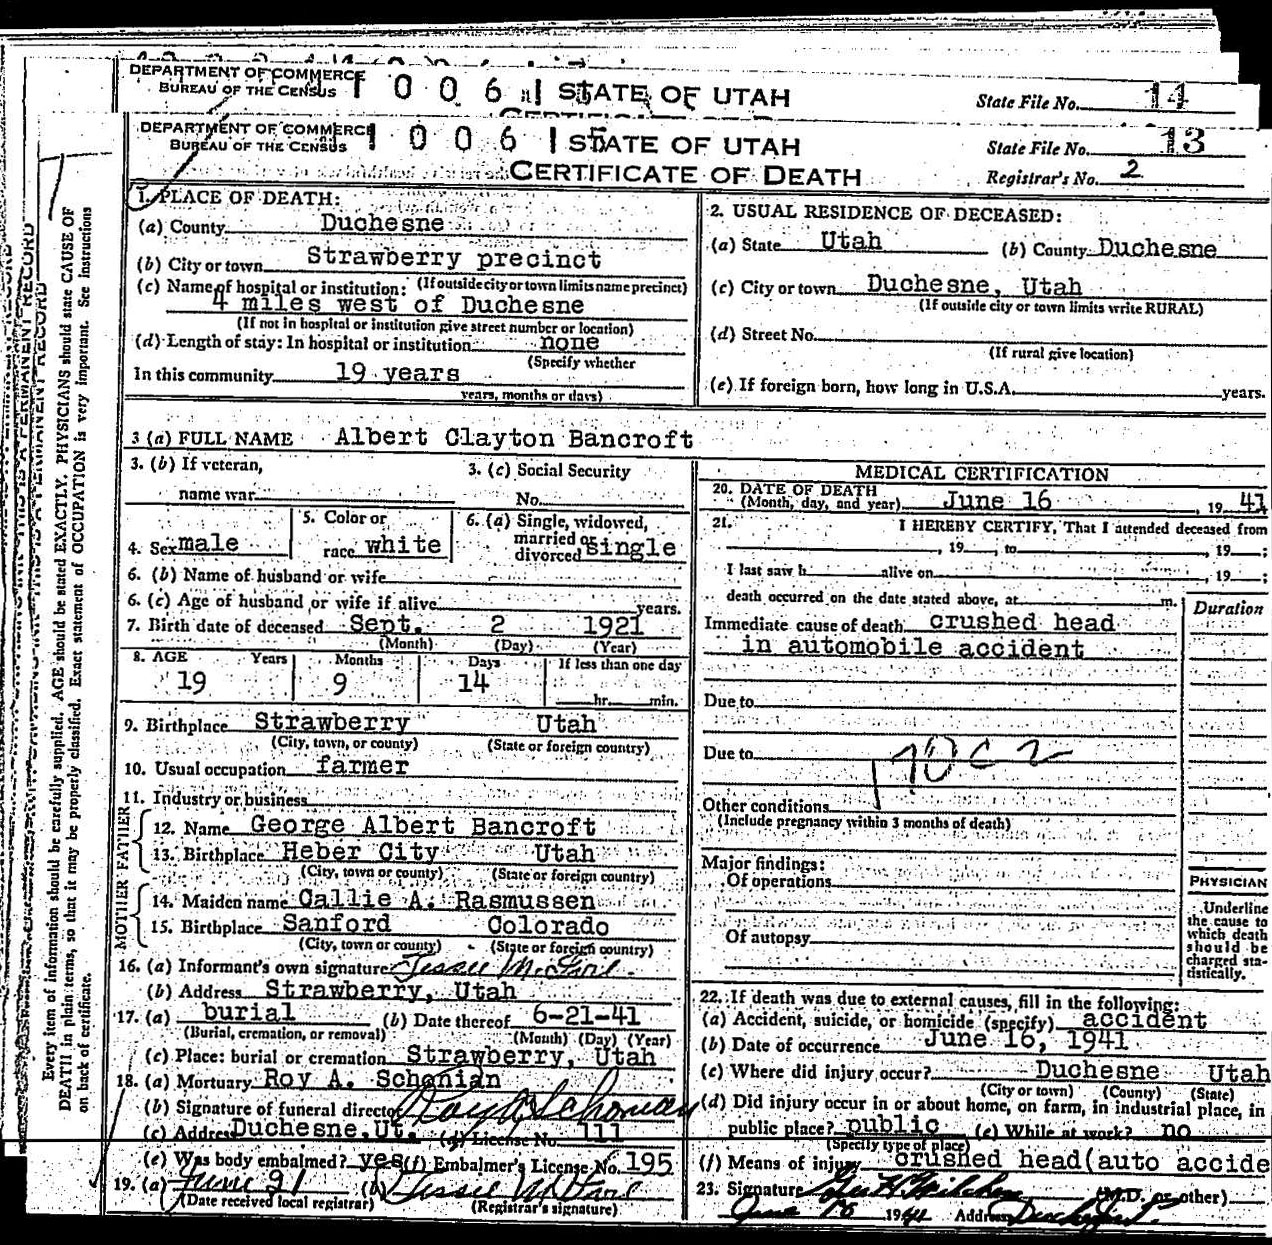 DEPARTMENT OF COMMERCE
BUREAU OF THE CENSUS
1 0 0 6 1 STATE OF UTAH
State File No. 14
DEPARTMENT OF COMMERCE
BUREAU OF THE CENSUS
1 0 0 6 1 STATE OF UTAH
State File No. 13
CERTIFICATE OF DEATH
Registrar's No. 2
Every item of information should be carefully supplied. AGE should be stated EXACTLY. PHYSICIANS should state CAUSE OF
DEATH in plain terms, so that it may be properly classified. Exact statement of OCCUPATION is very important. See Instructions
on back of certificate.
1. PLACE OF DEATH:
(a) County Duchesne
(b) City or town Strawberry precinct
(If outside city or town limits name precinct)
(c) Name of hospital or institution:
4 miles west of Duchesne
(If not in hospital or institution give street number or location)
(d) Length of stay: In hospital or institution none
(Specify whether
In this community 19 years
years, months or days)
2. USUAL RESIDENCE OF DECEASED:
(a) State Utah (b) County Duchesne
(c) City or town Duchesne, Utah
(If outside city or town limits write RURAL)
(d) Street No.
(If rural give location)
(e) If foreign born, how long in U.S.A. years.
3 (a) FULL NAME Albert Clayton Bancroft
3. (b) If veteran,
name war
3. (c) Social Security
No.
4. Sex male
5. Color or
race white
6. (a) Single, widowed,
married or
divorced single
6. (b) Name of husband or wife
6. (c) Age of husband or wife if alive years.
7. Birth date of deceased Sept. 2 1921
(Month) (Day) (Year)
8. AGE Years Months Days If less than one day
19 9 14 hr. min.
9. Birthplace Strawberry Utah
(City, town, or county) (State or foreign country)
10. Usual occupation farmer
11. Industry or business
FATHER
12. Name George Albert Bancroft
13. Birthplace Heber City Utah
(City, town or county) (State or foreign country)
MOTHER
14. Maiden name Callie A. Rasmussen
15. Birthplace Sanford Colorado
(City, town or county) (State or foreign country)
16. (a) Informant's own signature Jessie
(b) Address Strawberry, Utah
17. (a) burial (b) Date thereof 6-21-41
(Burial, cremation, or removal) (Month) (Day) (Year)
(c) Place: burial or cremation Strawberry, Utah
18. (a) Mortuary Roy A. Schonian
(b) Signature of funeral director Roy A Schonian
(c) Address Duchesne, Ut. (d) License No. 111
(e) Was body embalmed? yes (f) Embalmer's License No. 195
19. (a) June 21 (b) Jessie
(Date received local registrar) (Registrar's signature)
MEDICAL CERTIFICATION
20. DATE OF DEATH
(Month, day, and year) June 16, 19 41
21. I HEREBY CERTIFY, That I attended deceased from
, 19 , to , 19 ;
I last saw h alive on , 19 ;
death occurred on the date stated above, at m.
Duration
Immediate cause of death crushed head
in automobile accident
Due to
Due to
Other conditions
(Include pregnancy within 3 months of death)
Major findings:
Of operations
Of autopsy
PHYSICIAN
Underline
the cause to
which death
should be
charged sta-
tistically.
22. If death was due to external causes, fill in the following:
(a) Accident, suicide, or homicide (specify) accident
(b) Date of occurrence June 16, 1941
(c) Where did injury occur? Duchesne Utah
(City or town) (County) (State)
(d) Did injury occur in or about home, on farm, in industrial place, in
public place? public (e) While at work? no
(Specify type of place)
(f) Means of injury crushed head(auto accide
23. Signature (M.D. or other)
June 16 1941 Address